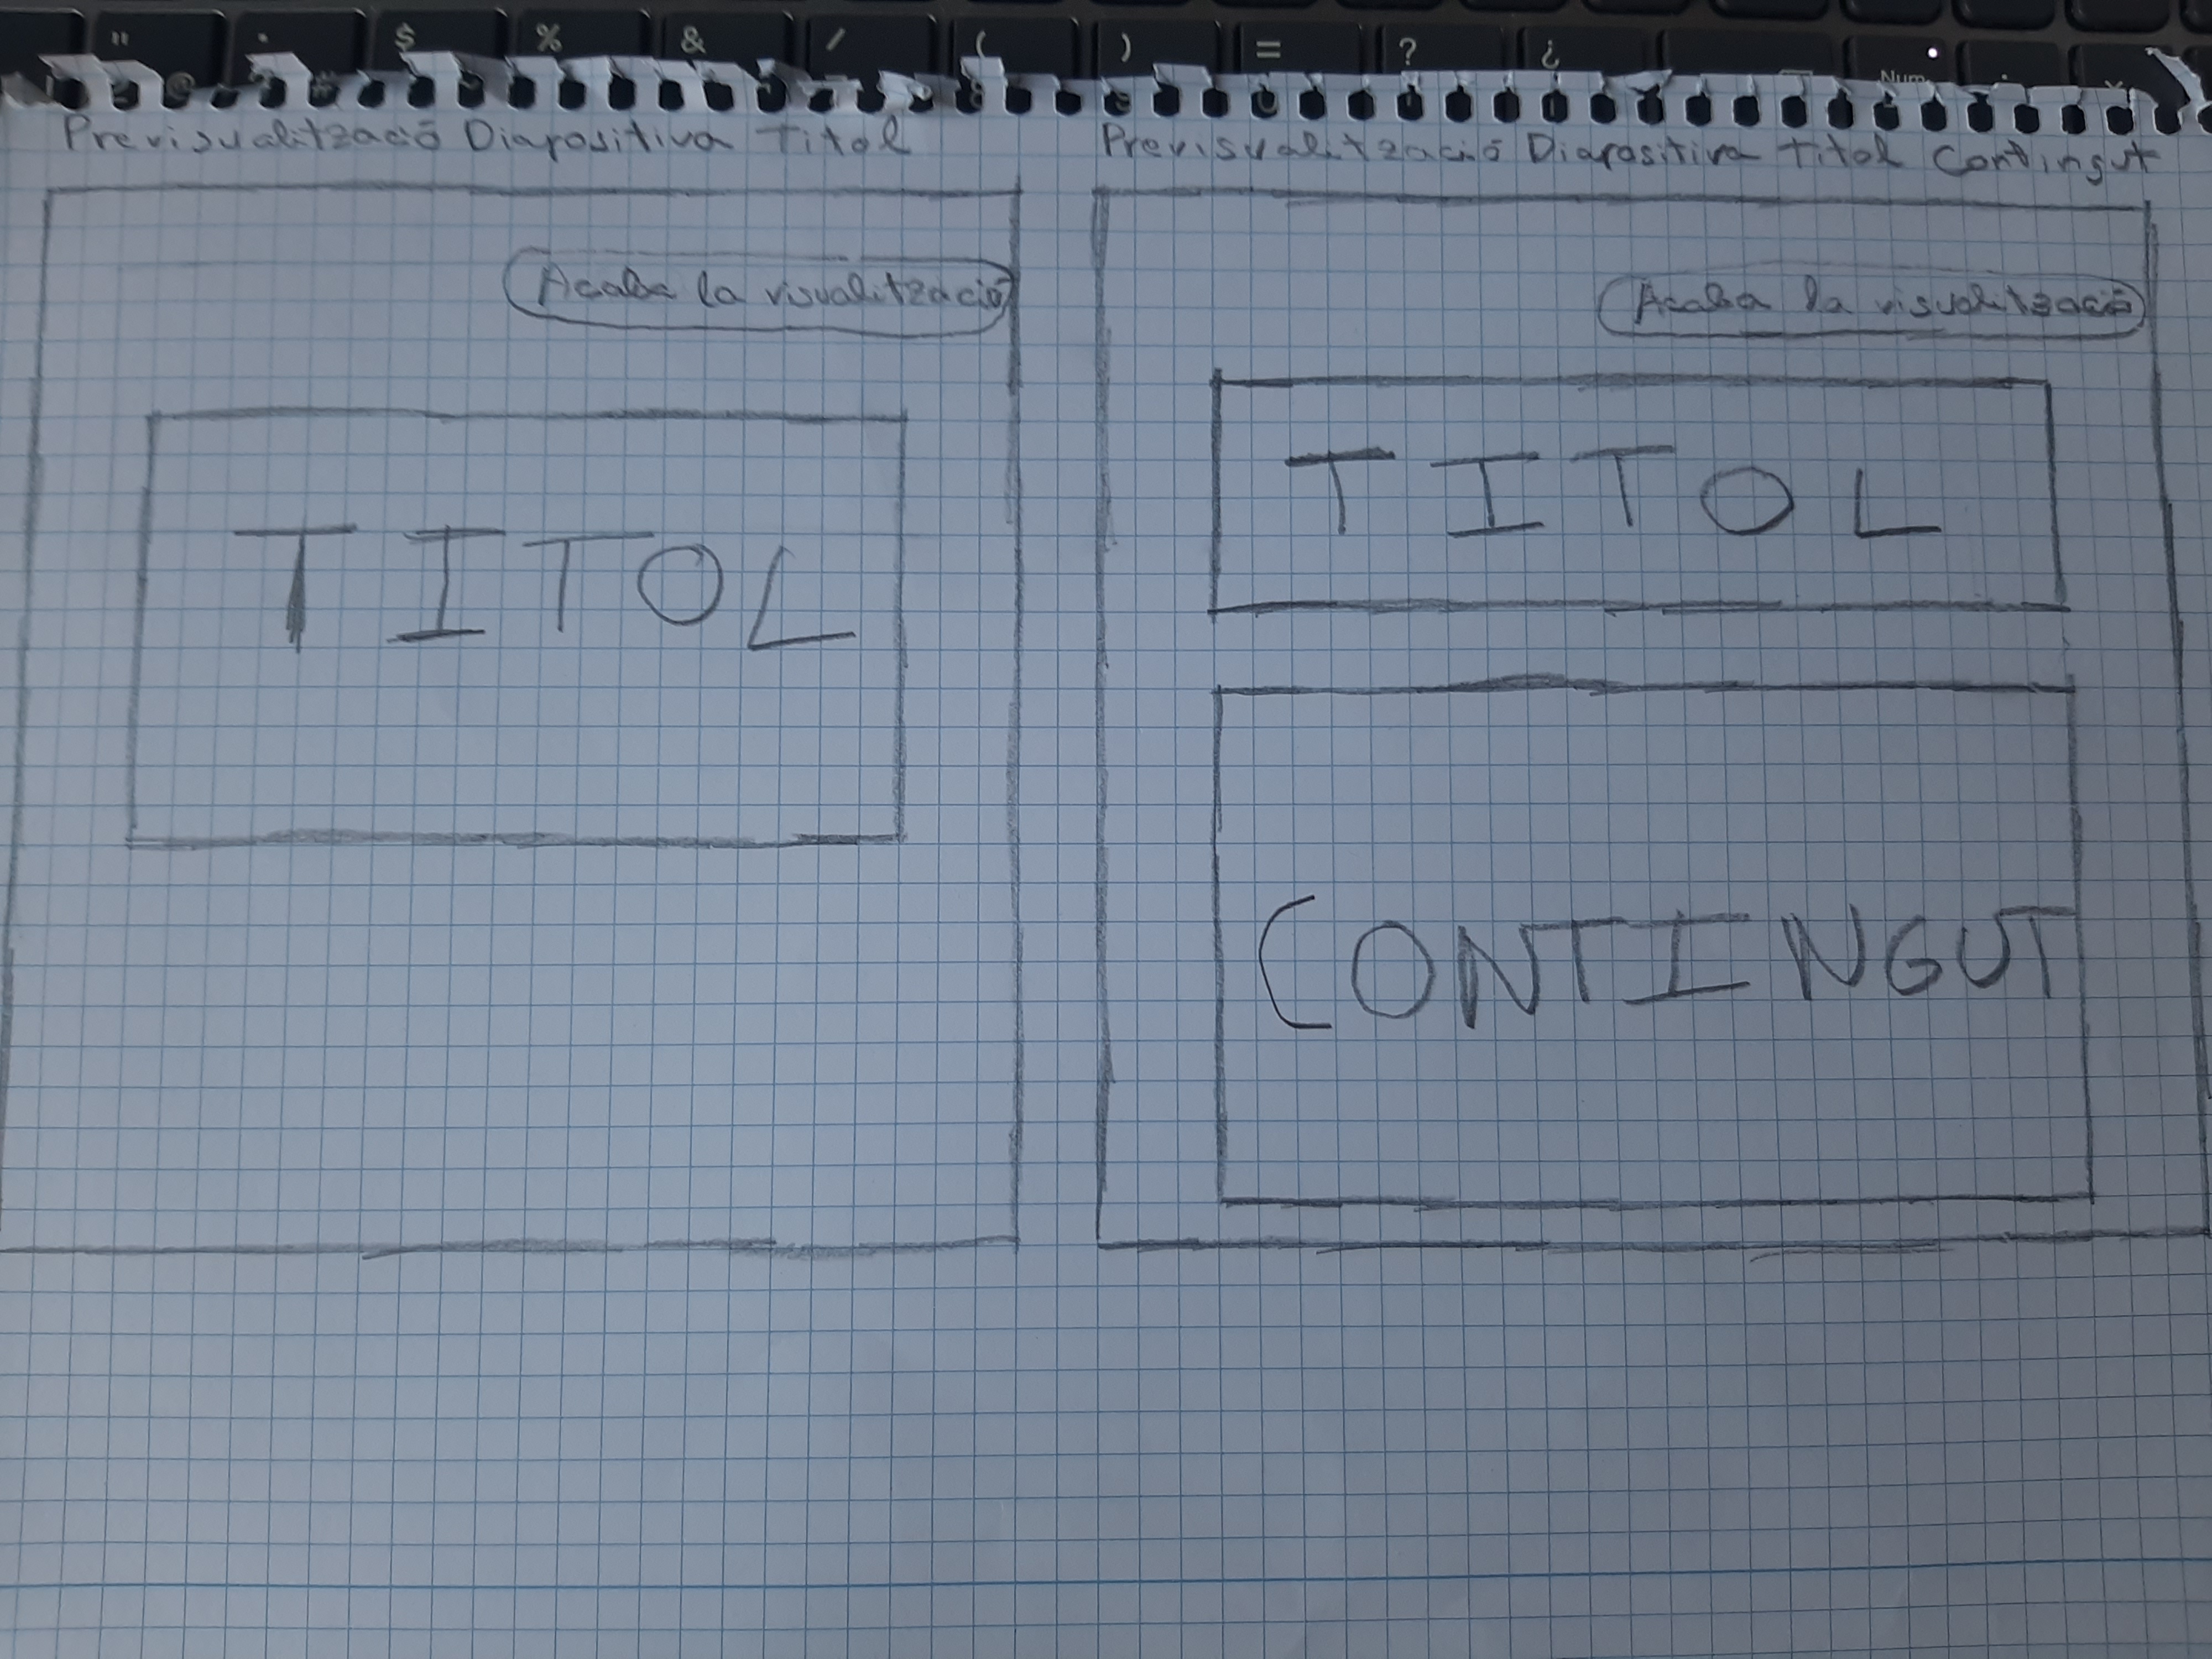 " · $ % & / ( ) = ? ¿
Num
Previsualització Diapositiva Titol
Acaba la visualització
TITOL
Previsualització Diapositiva Titol Contingut
Acaba la visualització
TITOL
CONTINGUT